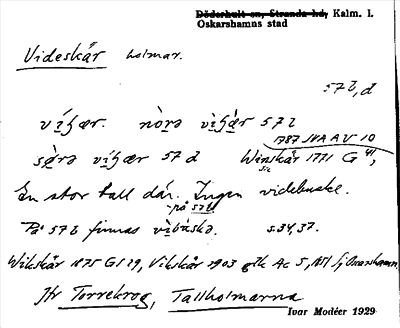 Döderhult sn, Stranda hd, Kalm. l.
Oskarshamns stad
Videskär holmar.
57 l, d
víʃær. nòrə víʃær 57 l
1787 JVA A V 10
sø̀rə víʃær 57 d Winskär 1771 G 41,
sic
En stor tall där. Ingen videbuske.
på 57 d
På 57 l finnas vìbúskə. s. 34, 37.
Wikskär 1875 GS 19, Vikskär 1903 gtk Ac 5,
Jfr Torrekrog, Tallholmarna
Ivar Modéer 1929